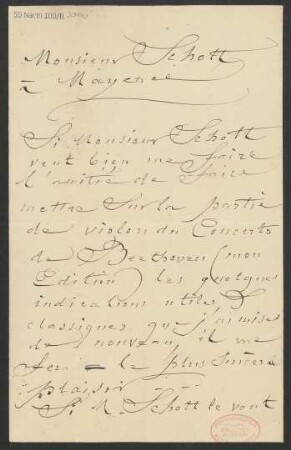 55 Nachl 100/A
Monsieur Schott
à Mayence
Si Monsieur Schott
veut bien me faire
l'amitié de faire
mettre sur la partie
de violon du Concerto
de Beethoven (mon
Edition) les quelques
indications utiles &
classiques que j'ai mises
de nouveau, il me
fera le plus sincère
plaisir
Si M. Schott le veut